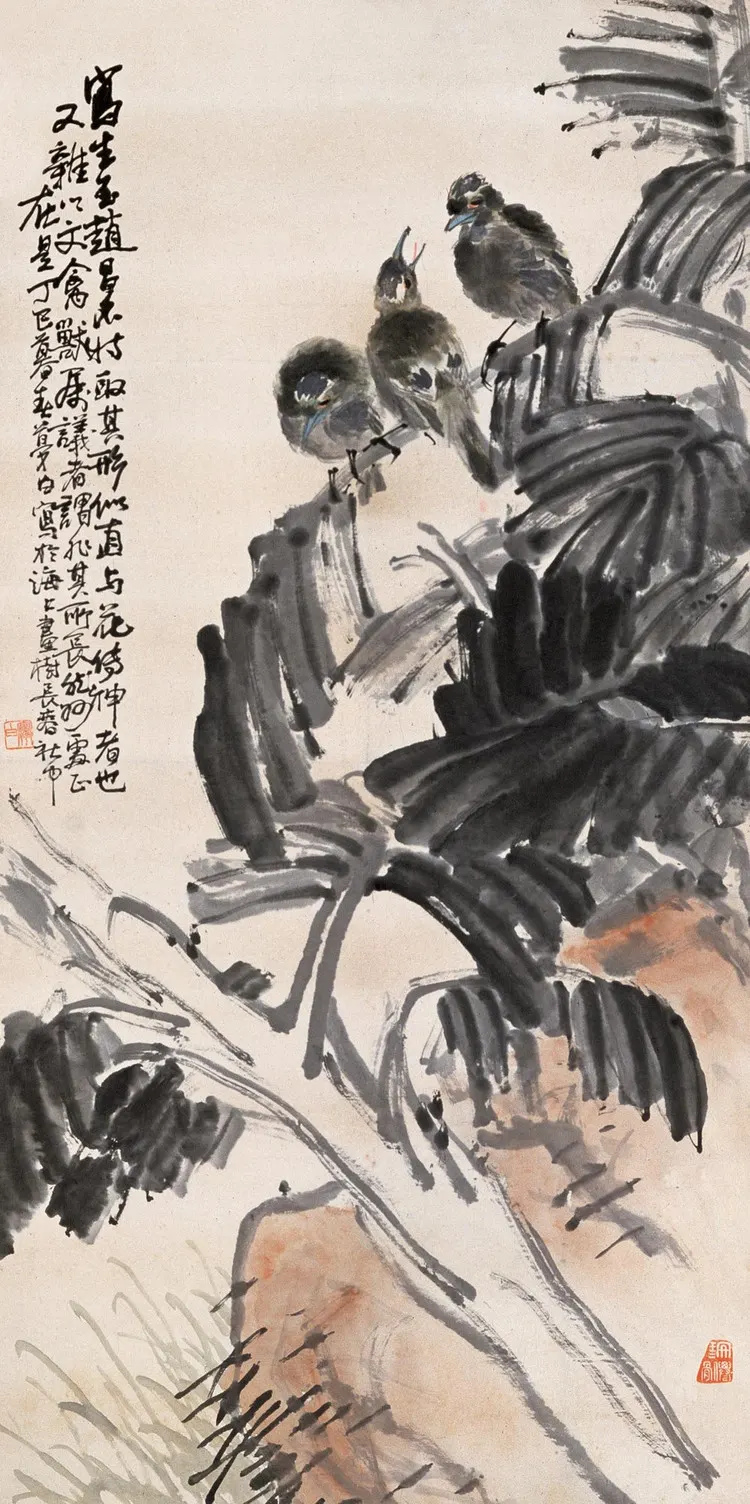 寫生至趙昌不特取其形似直与花傳神者也
又雜以文禽獸属議者謂非其所長然妙處正
在是丁巳暮春夢白寫於海上畫樹長春社中